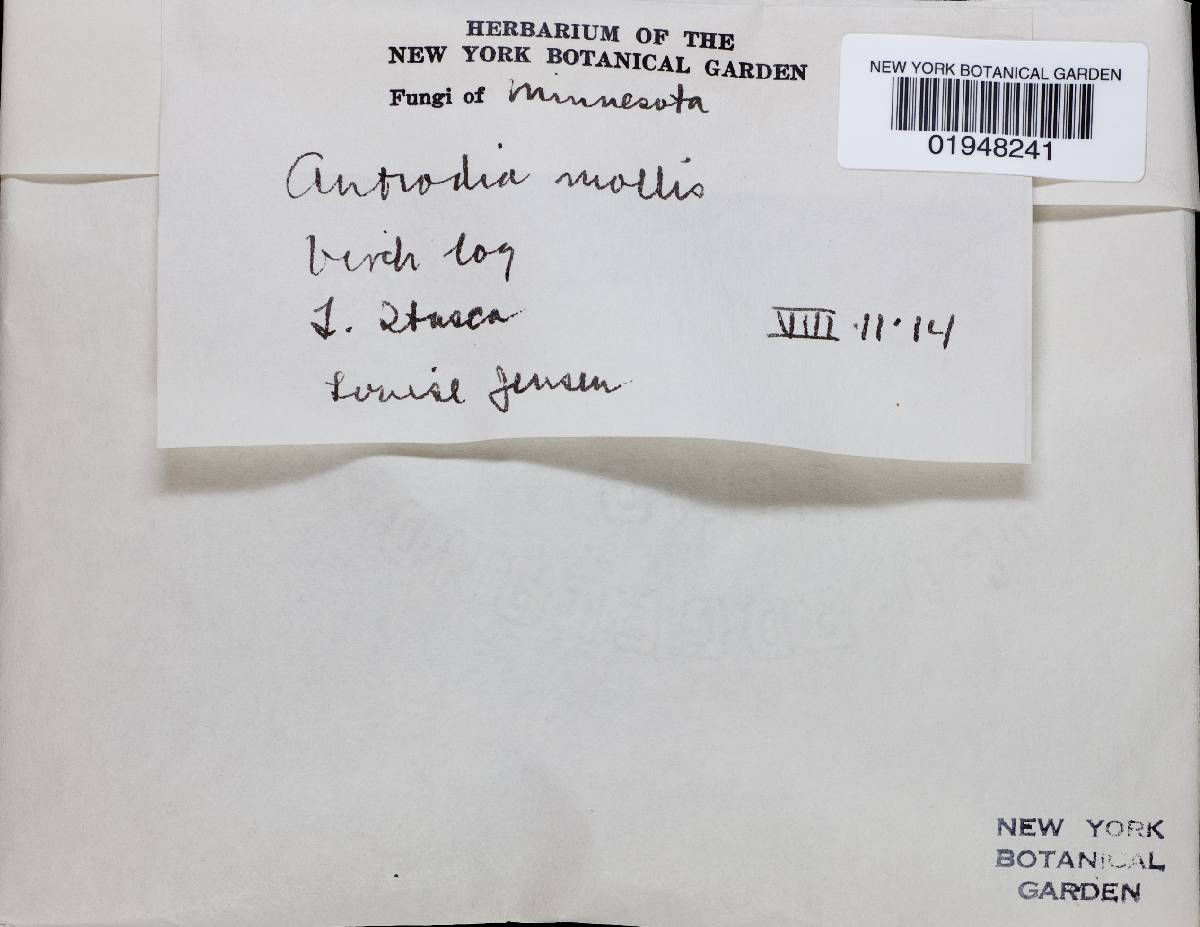 HERBARIUM OF THE
NEW YORK BOTANICAL GARDEN
Fungi of Minnesota
NEW YORK BOTANICAL GARDEN
01948241
Antrodia mollis
birch log
L. Itasca
VIII·11·14
Louise Jensen
NEW YORK
BOTANICAL
GARDEN